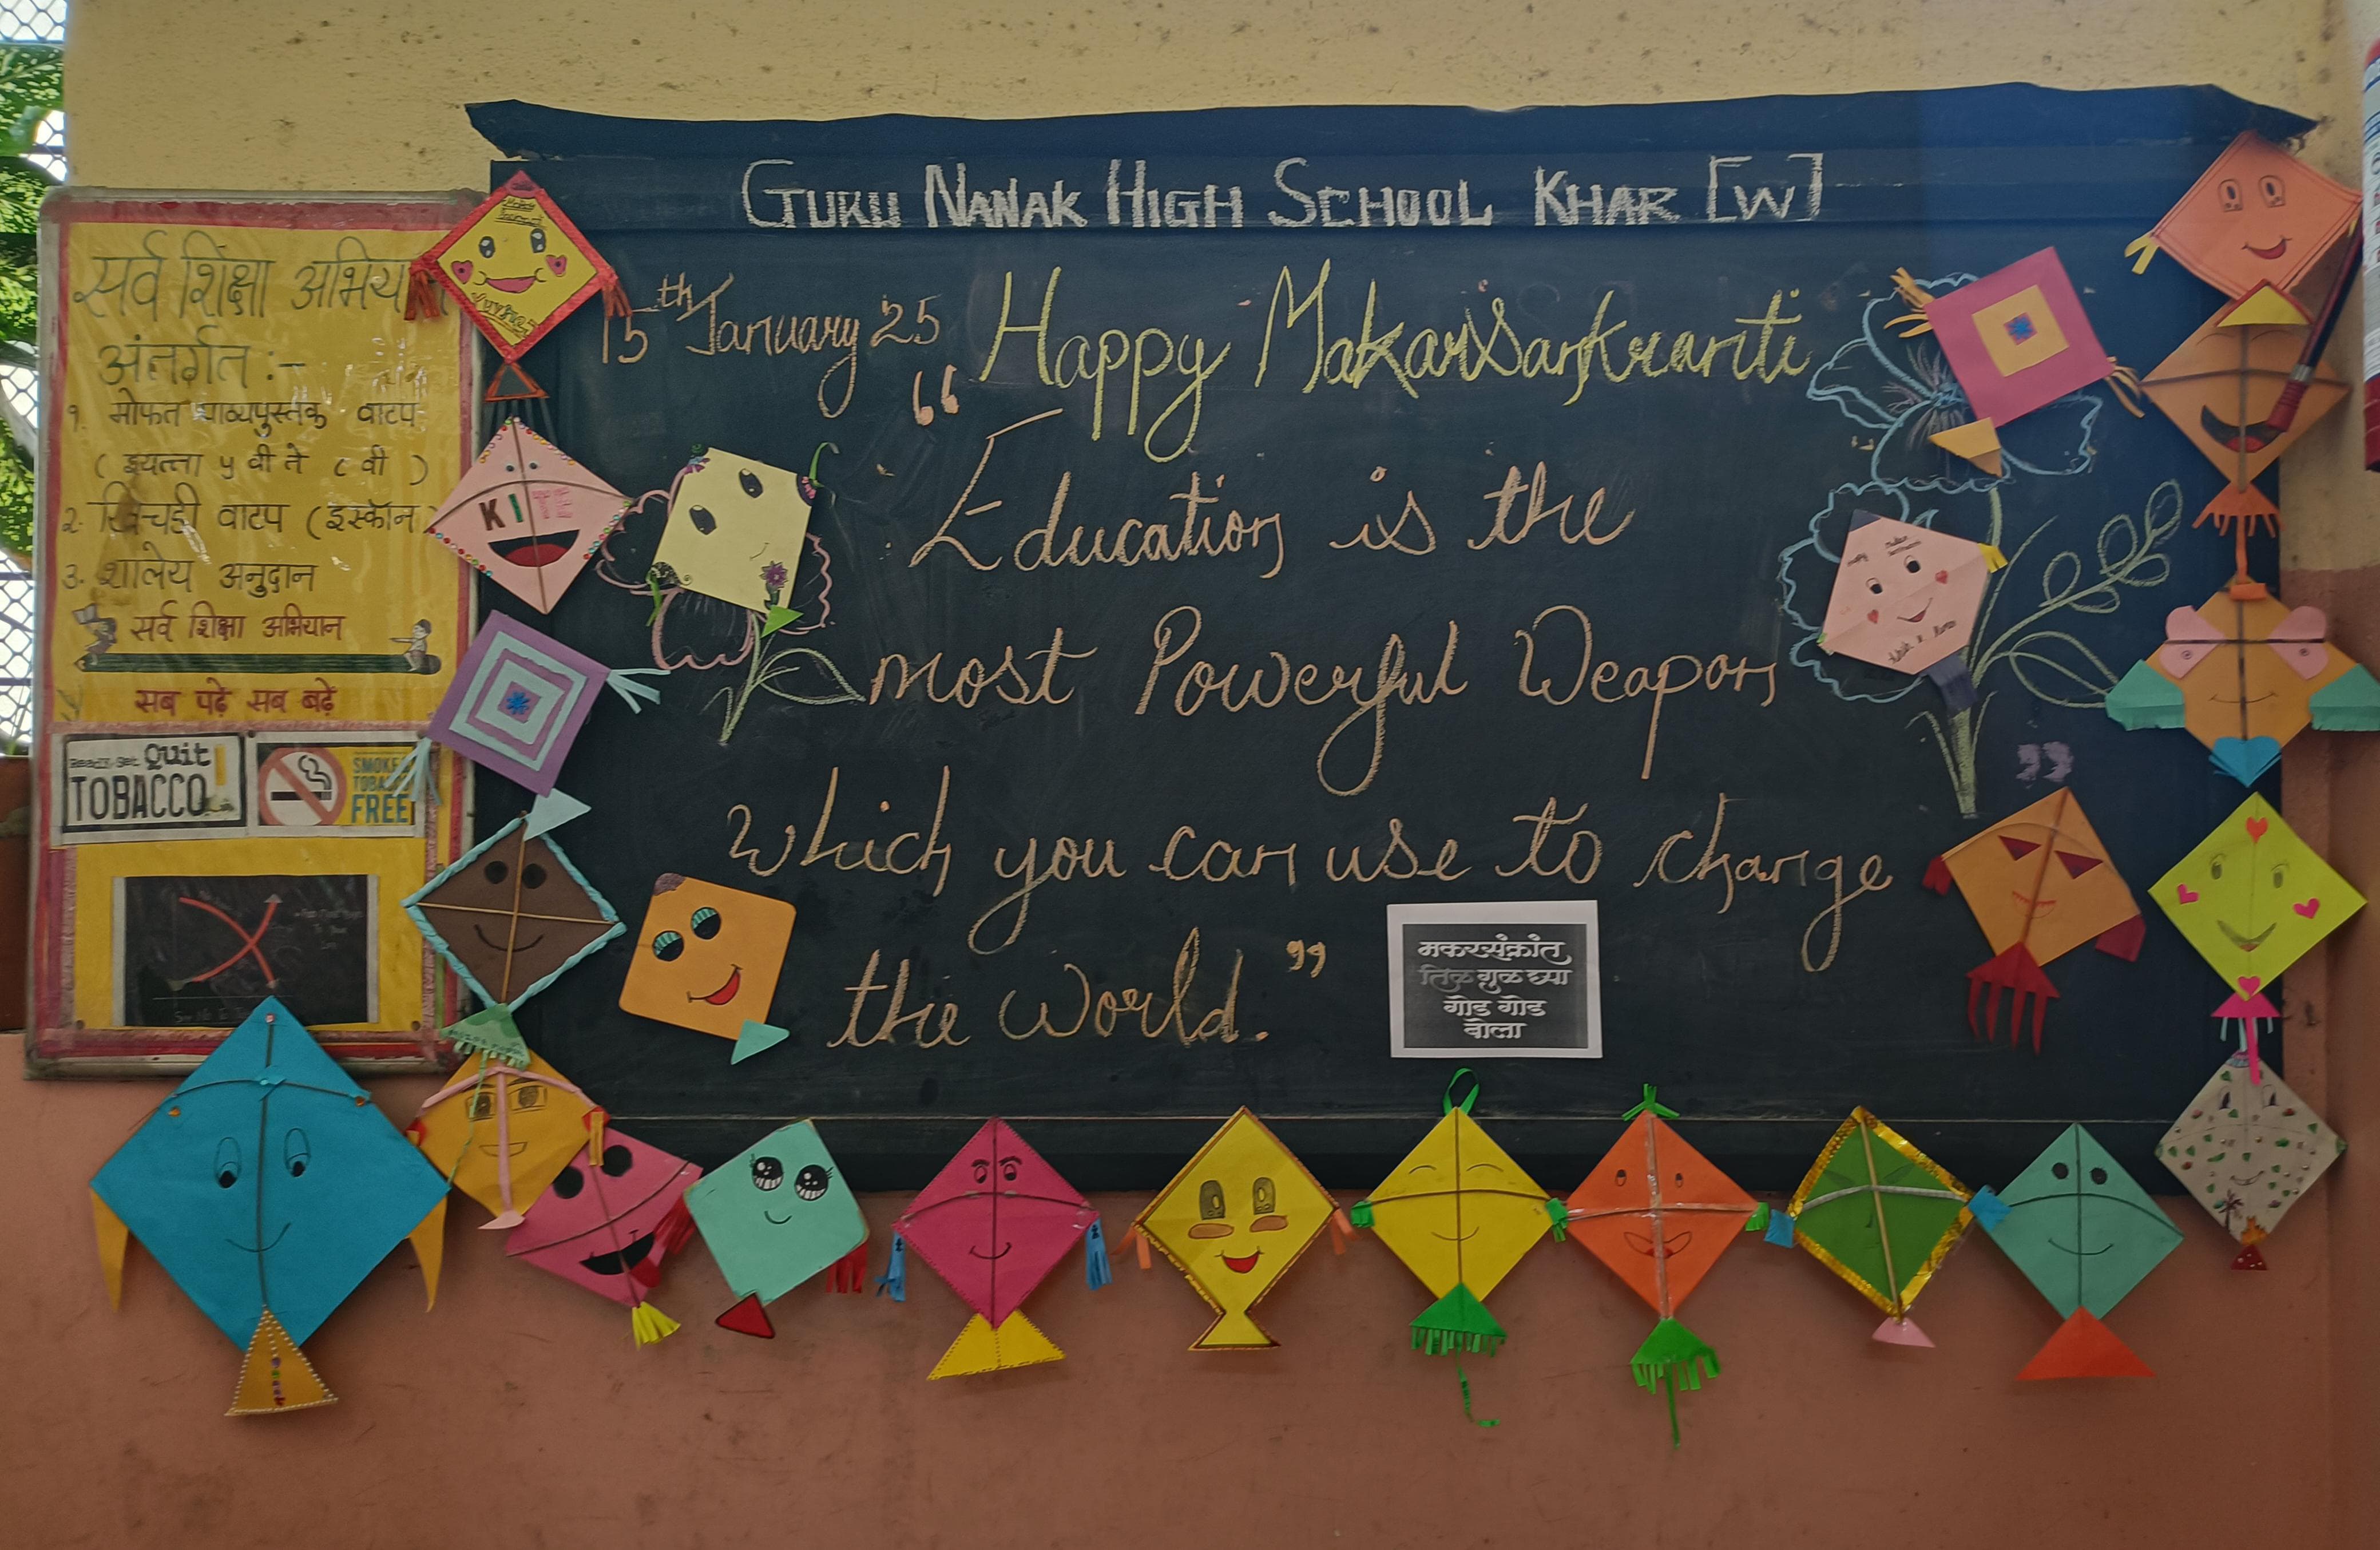 GURU NANAK HIGH SCHOOL KHAR [W]
15th January 25
Happy MakarSankranti
“Education is the
most Powerful Weapon
Which you can use to change
the World.”
मकरसंक्रांत
तिळ गुळ घ्या
गोड गोड
बोला
सर्व शिक्षा अभिया
अंतर्गत :-
१. मोफत पाठ्यपुस्तक वाटप
( इयत्ता ५ वी ते ८ वी )
२. खिचडी वाटप ( इस्कॉन )
३. शालेय अनुदान
सर्व शिक्षा अभियान
सब पढ़े सब बढ़ें
Ready Set Quit
TOBACCO
SMOKE
TOBA
FREE
KITE